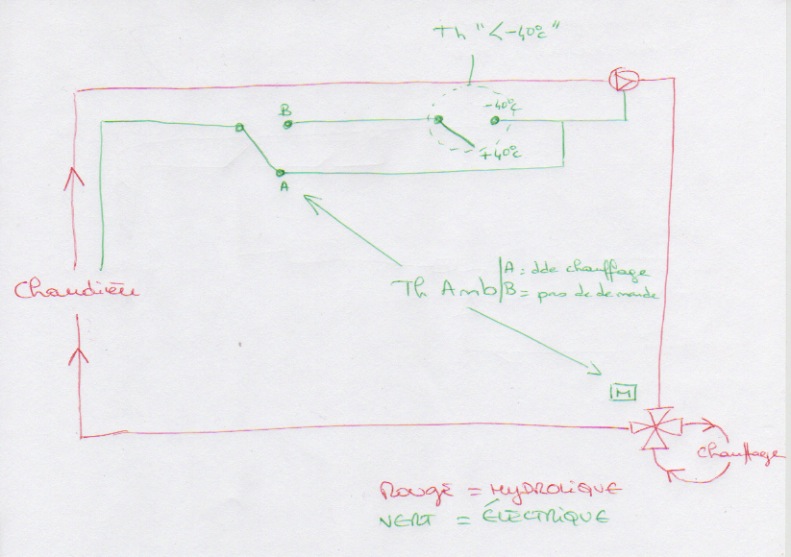 Th "<-40°c"
B
-40°c
+40°c
A
Chaudière
Th Amb
A = dde chauffage
B = pas de demande
M
Chauffage
ROUGE = HYDROLIQUE
VERT = ÉLECTRIQUE